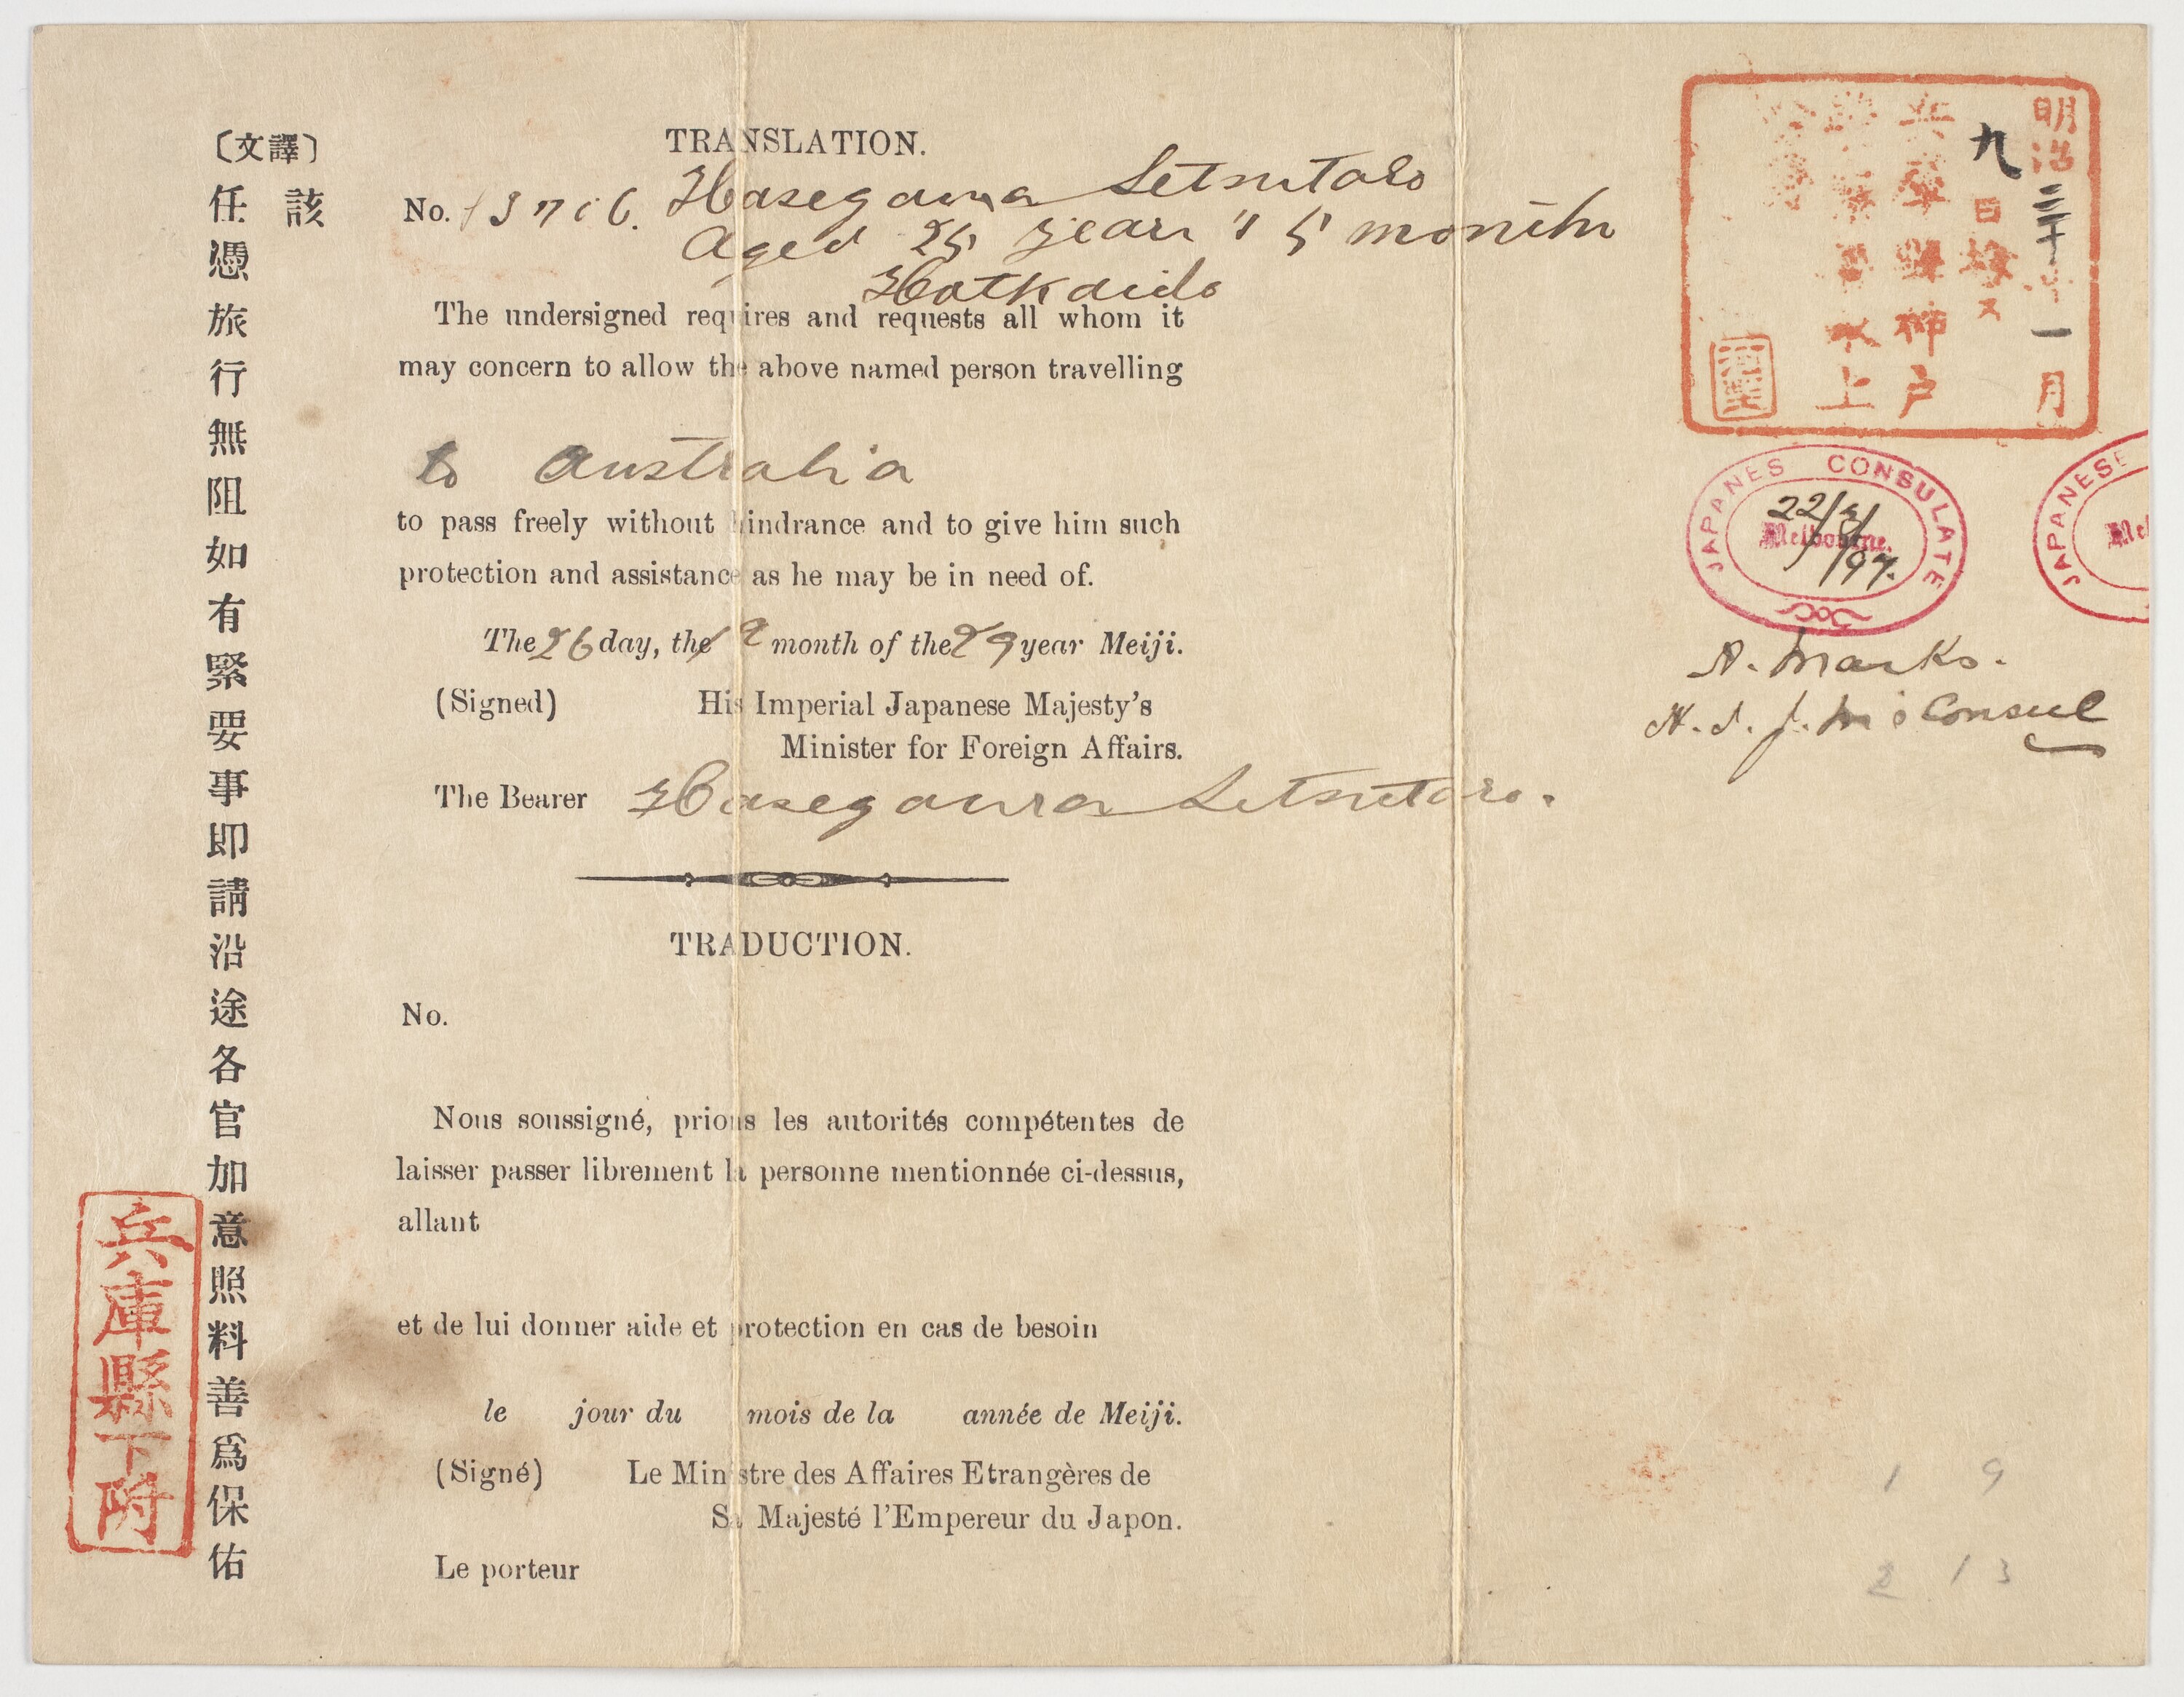 〔譯文〕
該
任憑旅行無阻如有緊要事即請沿途各官加意照料善爲保佑
兵庫縣下附
TRANSLATION.
No. 13706. Hasegawa Setsutaro
Aged 25 year " 5 month
Hotkaido
The undersigned requires and requests all whom it
may concern to allow the above named person travelling
to Australia
to pass freely without hindrance and to give him such
protection and assistance as he may be in need of.
The 26 day, the 12 month of the 29 year Meiji.
(Signed) His Imperial Japanese Majesty's
Minister for Foreign Affairs.
The Bearer Hasegawa Setsutaro.
TRADUCTION.
No.
Nous soussigné, prions les autorités compétentes de
laisser passer librement la personne mentionnée ci-dessus,
allant
et de lui donner aide et protection en cas de besoin
le jour du mois de la année de Meiji.
(Signé) Le Ministre des Affaires Etrangères de
Sa Majesté l'Empereur du Japon.
Le porteur
明治三十年一月
九日檢ス
兵庫縣神戶
水上
JAPANES CONSULATE
Melbourne.
22/3/97.
JAPANESE
Mel
A. Marks.
H. I. J. M's Consul
1 9
2 13